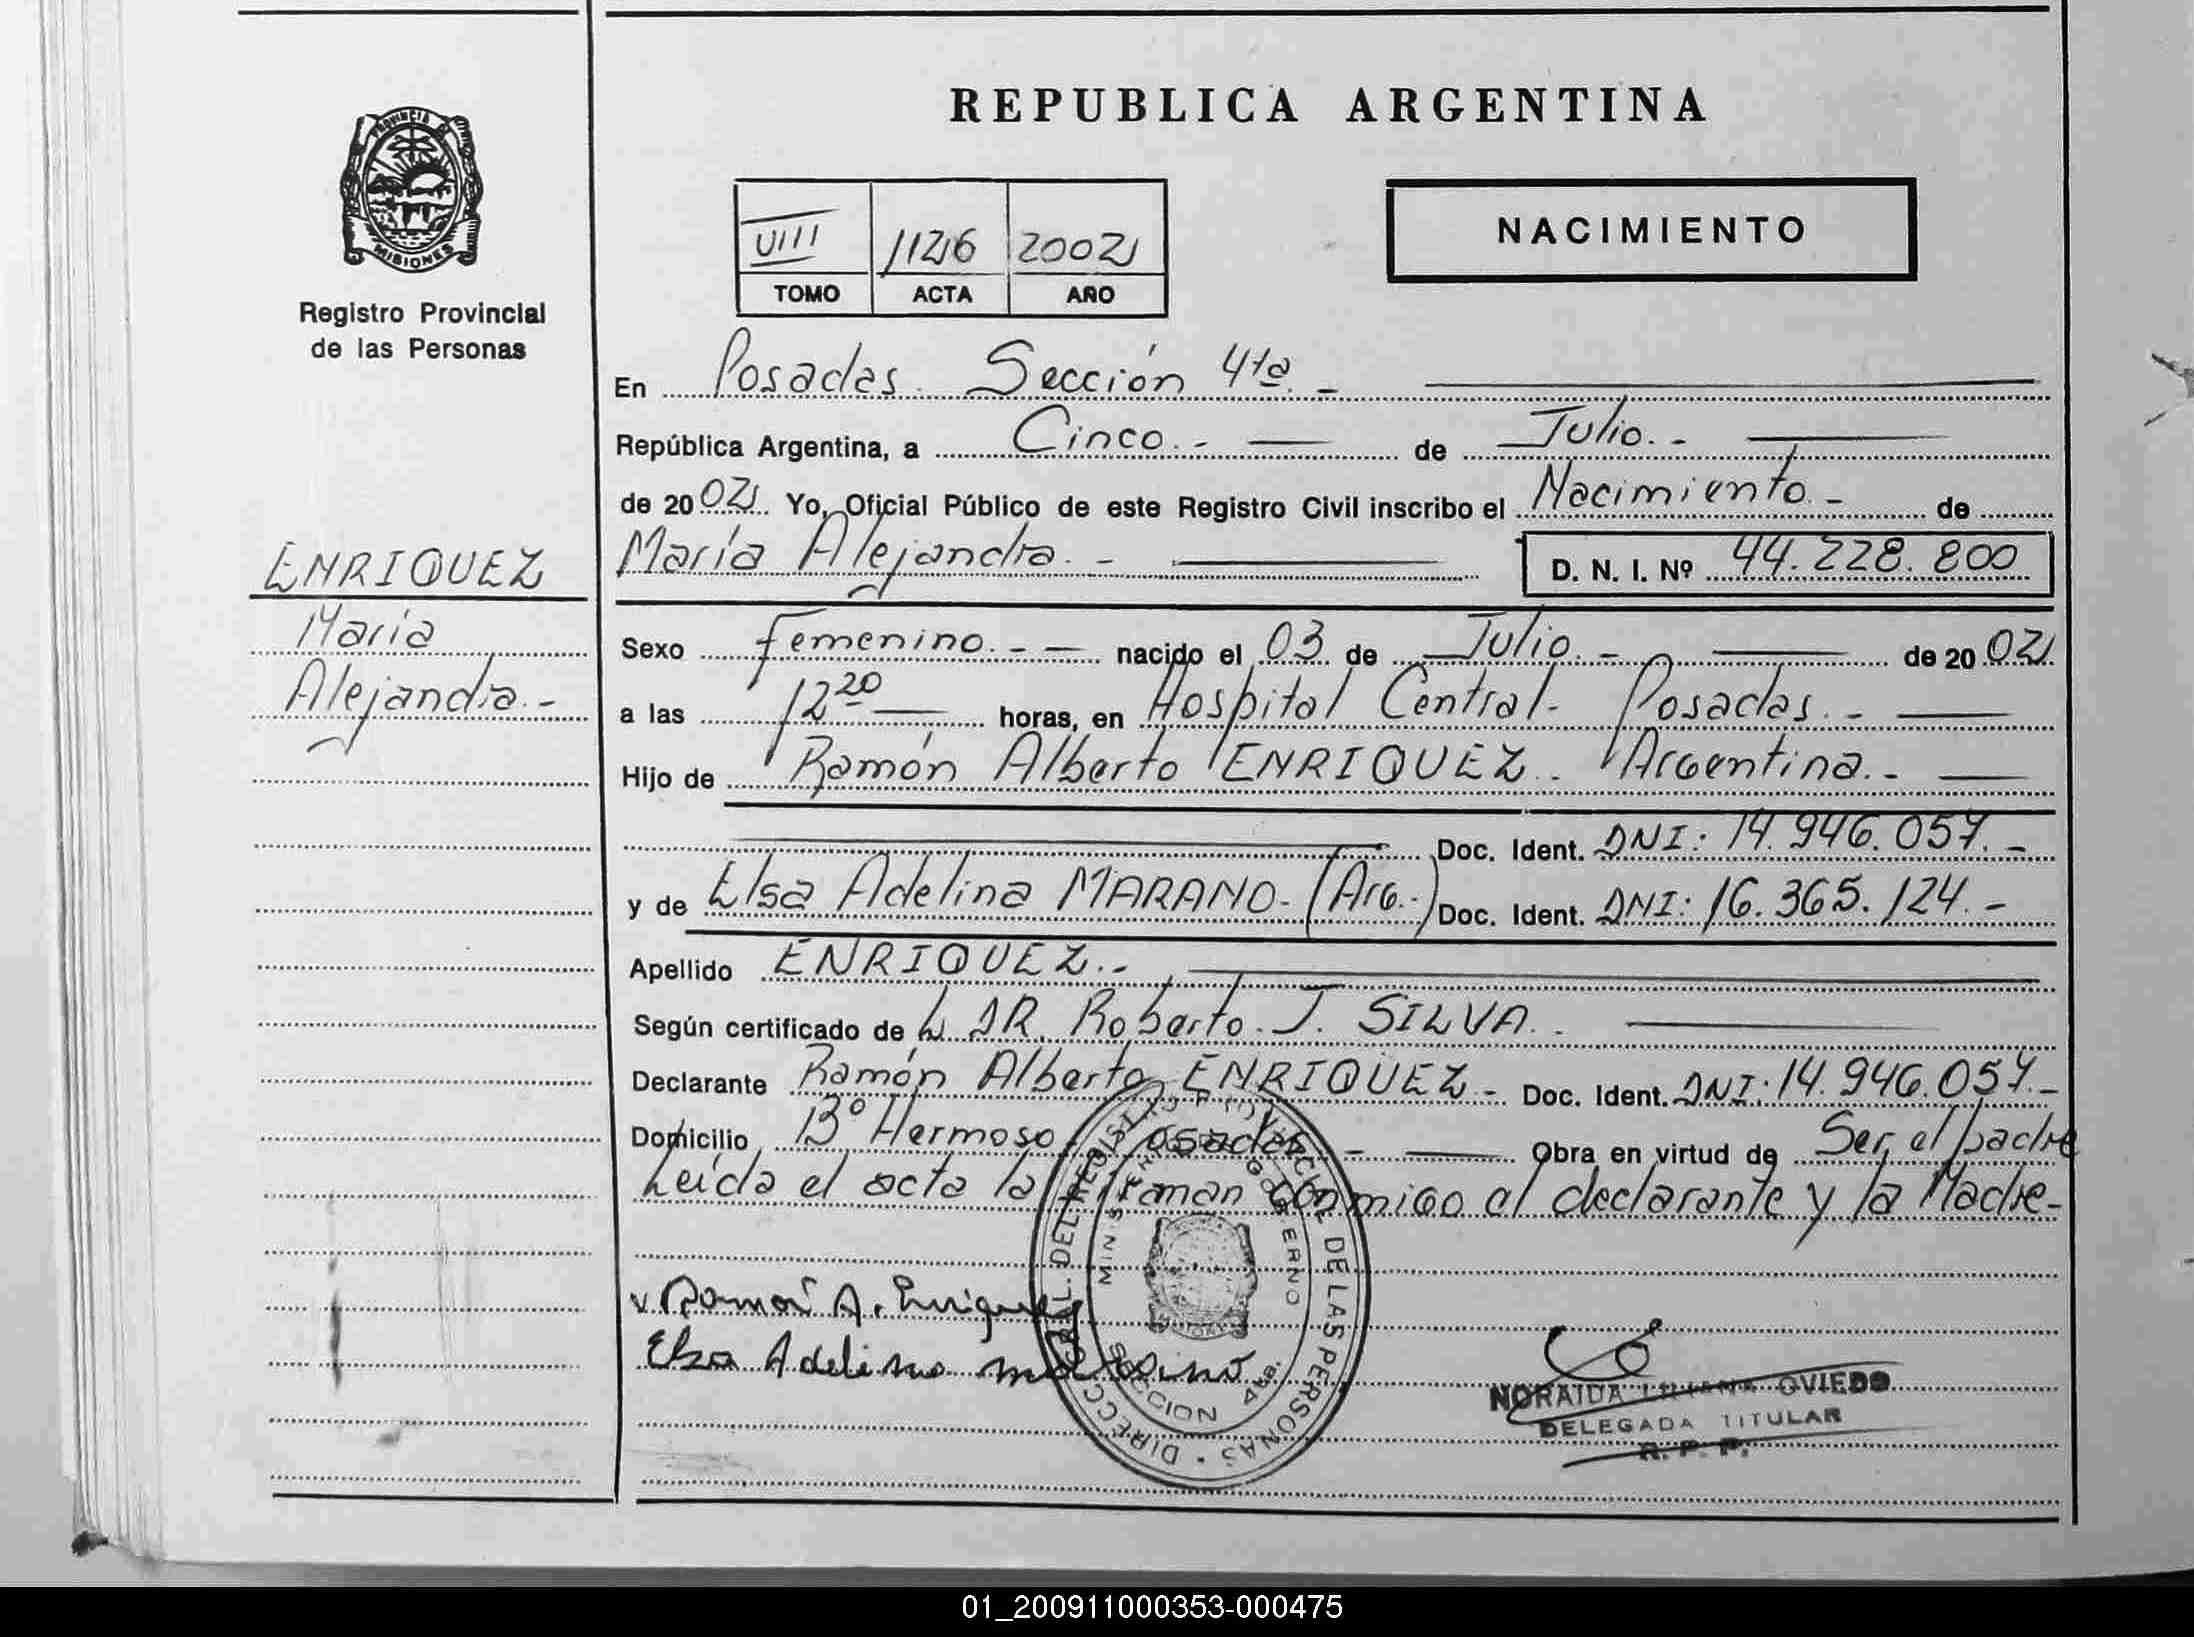 REPUBLICA ARGENTINA
PROVINCIA DE
MISIONES
Registro Provincial
de las Personas
VIII 1126 2002
TOMO ACTA AÑO
NACIMIENTO
En Posadas Sección 4ta.-
República Argentina, a Cinco.- de Julio.-
de 2002 Yo, Oficial Público de este Registro Civil inscribo el Nacimiento.- de
María Alejandra.- D. N. I. Nº 44.228.800
ENRIQUEZ
María
Alejandra.-
Sexo femenino.- nacido el 03 de Julio.- de 2002
a las 12 20 horas, en Hospital Central- Posadas.-
Hijo de Ramón Alberto ENRIQUEZ.. Argentina.-
Doc. Ident. DNI: 14.946.057.-
y de Elsa Adelina MARANO- (Arg.-) Doc. Ident. DNI: 16.365.124.-
Apellido ENRIQUEZ.-
Según certificado de L DR. Roberto. J. SILVA..
Declarante Ramón Alberto ENRIQUEZ- Doc. Ident. DNI: 14.946.057.-
Domicilio Bº Hermoso Posadas- Obra en virtud de Ser el padre
Leída el acta la firman conmigo el declarante y la Madre-
Ramón A. Enriquez
Elsa Adelina
DIRECC. GRAL. DEL REGISTRO PROVINCIAL DE LAS PERSONAS
MINISTERIO DE GOBIERNO
SECCION 4ta.
NORAIDA LILIANA OVIEDO
DELEGADA TITULAR
R. P. P.
01_200911000353-000475